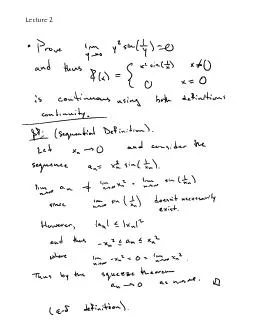 Lecture 2
• Prove lim y→0 y² sin(1/y) = 0
and thus f(x) = { x² sin(1/x) x≠0
0 x = 0
is continuous using both definitions
continuity.
(sequential Definition).
Let xₙ → 0 and consider the
sequence aₙ = xₙ² sin(1/xₙ).
lim n→∞ aₙ ≠ lim n→∞ xₙ² · lim n→∞ sin(1/xₙ)
since lim n→∞ sin(1/xₙ) doesn't necessarily
exist.
However, |aₙ| ≤ |xₙ|²
and thus -xₙ² ≤ aₙ ≤ xₙ²
where lim n→∞ -xₙ² = 0 = lim n→∞ xₙ².
Thus by the squeeze theorem
aₙ → 0 as n→∞.
(ε-δ definition).